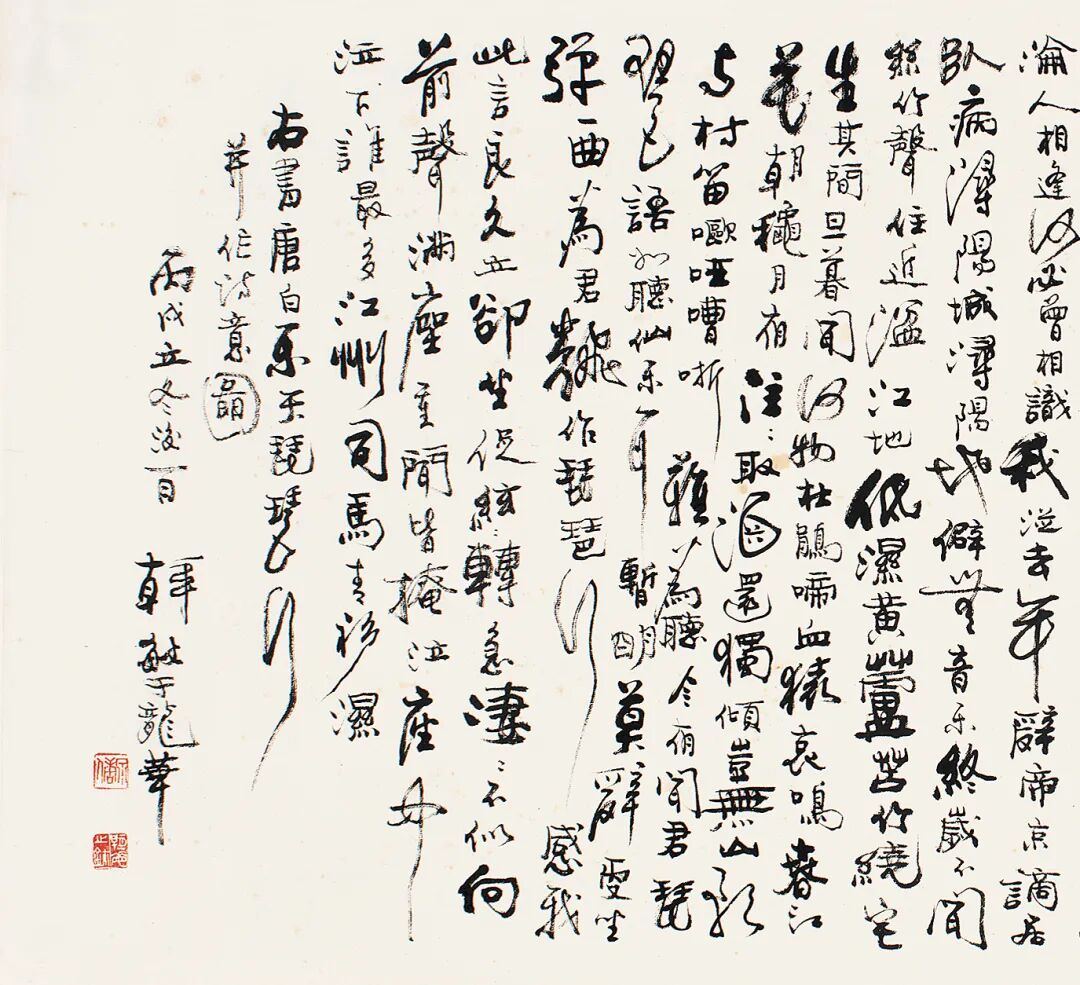 淪人相逢何必曾相識我從去年辭帝京謫居
臥病潯陽城潯陽地僻無音樂終歲不聞
絲竹聲住近湓江地低濕黃蘆苦竹繞宅
生其間旦暮聞何物杜鵑啼血猿哀鳴春江
花朝穐月夜往〻取酒還獨傾豈無山歌
与村笛嘔啞嘈哳難為聽今夜聞君琵
琶語如聽仙樂耳暫明莫辭更坐
彈一曲為君翻作琵琶行感我
此言良久立卻坐促絃〻轉急淒〻不似向
前聲滿座重聞皆掩泣座中
泣下誰最多江州司馬青衫濕
右書唐白樂天琵琶行
并作詩意圖
丙戌立冬後一日韓敏于龍華